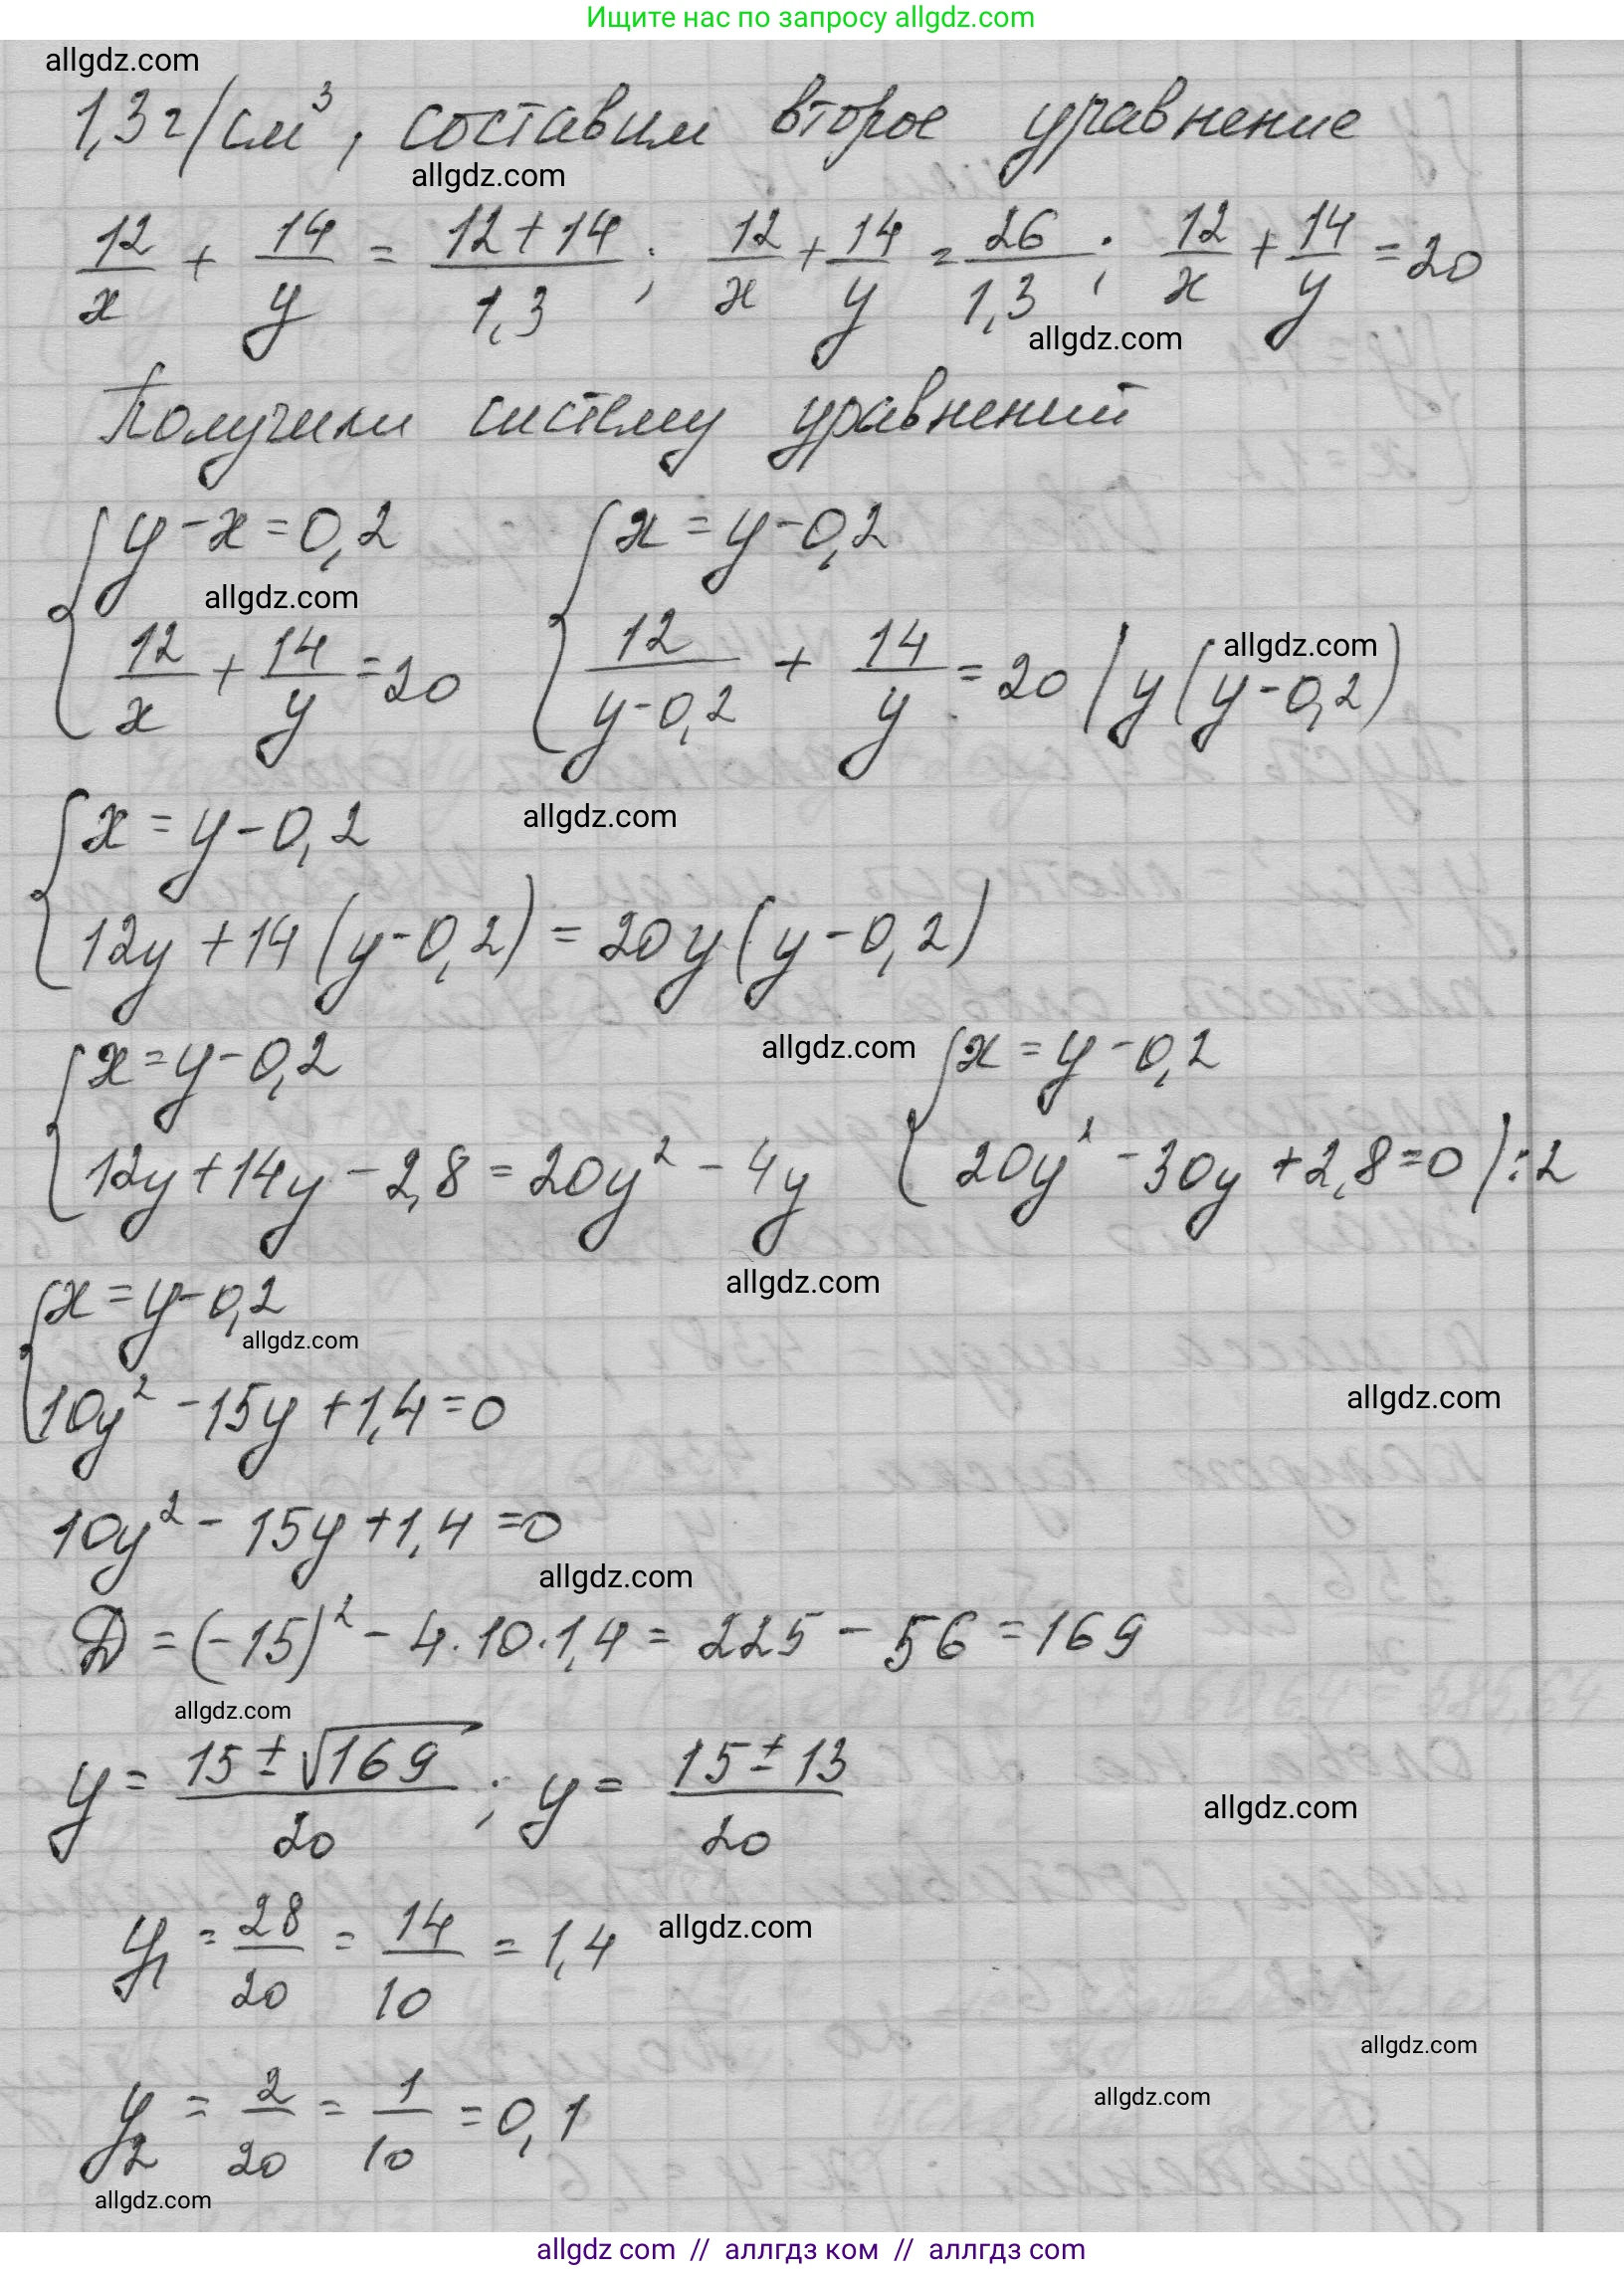 Ищите нас по запросу allgdz.com
allgdz.com
1,3 г/см³, составим второе уравнение
allgdz.com
12/x + 14/y = (12+14)/1,3 ; 12/x + 14/y = 26/1,3 ; 12/x + 14/y = 20
allgdz.com
Получили систему уравнений
{ y-x=0,2 { x=y-0,2
allgdz.com
12/x + 14/y = 20 12/(y-0,2) + 14/y = 20 | y(y-0,2)
allgdz.com
{ x=y-0,2
allgdz.com
12y+14(y-0,2)=20y(y-0,2)
{ x=y-0,2 { x=y-0,2
allgdz.com
12y+14y-2,8=20y²-4y 20y²-30y+2,8=0 |:2
allgdz.com
{ x=y-0,2
allgdz.com
10y²-15y+1,4=0
allgdz.com
10y²-15y+1,4=0
allgdz.com
D=(-15)²-4·10·1,4=225-56=169
allgdz.com
y=(15±√169)/20 ; y=(15±13)/20
allgdz.com
y₁=28/20=14/10=1,4
allgdz.com
allgdz.com
y₂=2/20=1/10=0,1
allgdz.com
allgdz.com
allgdz com // аллгдз ком // аллгдз com